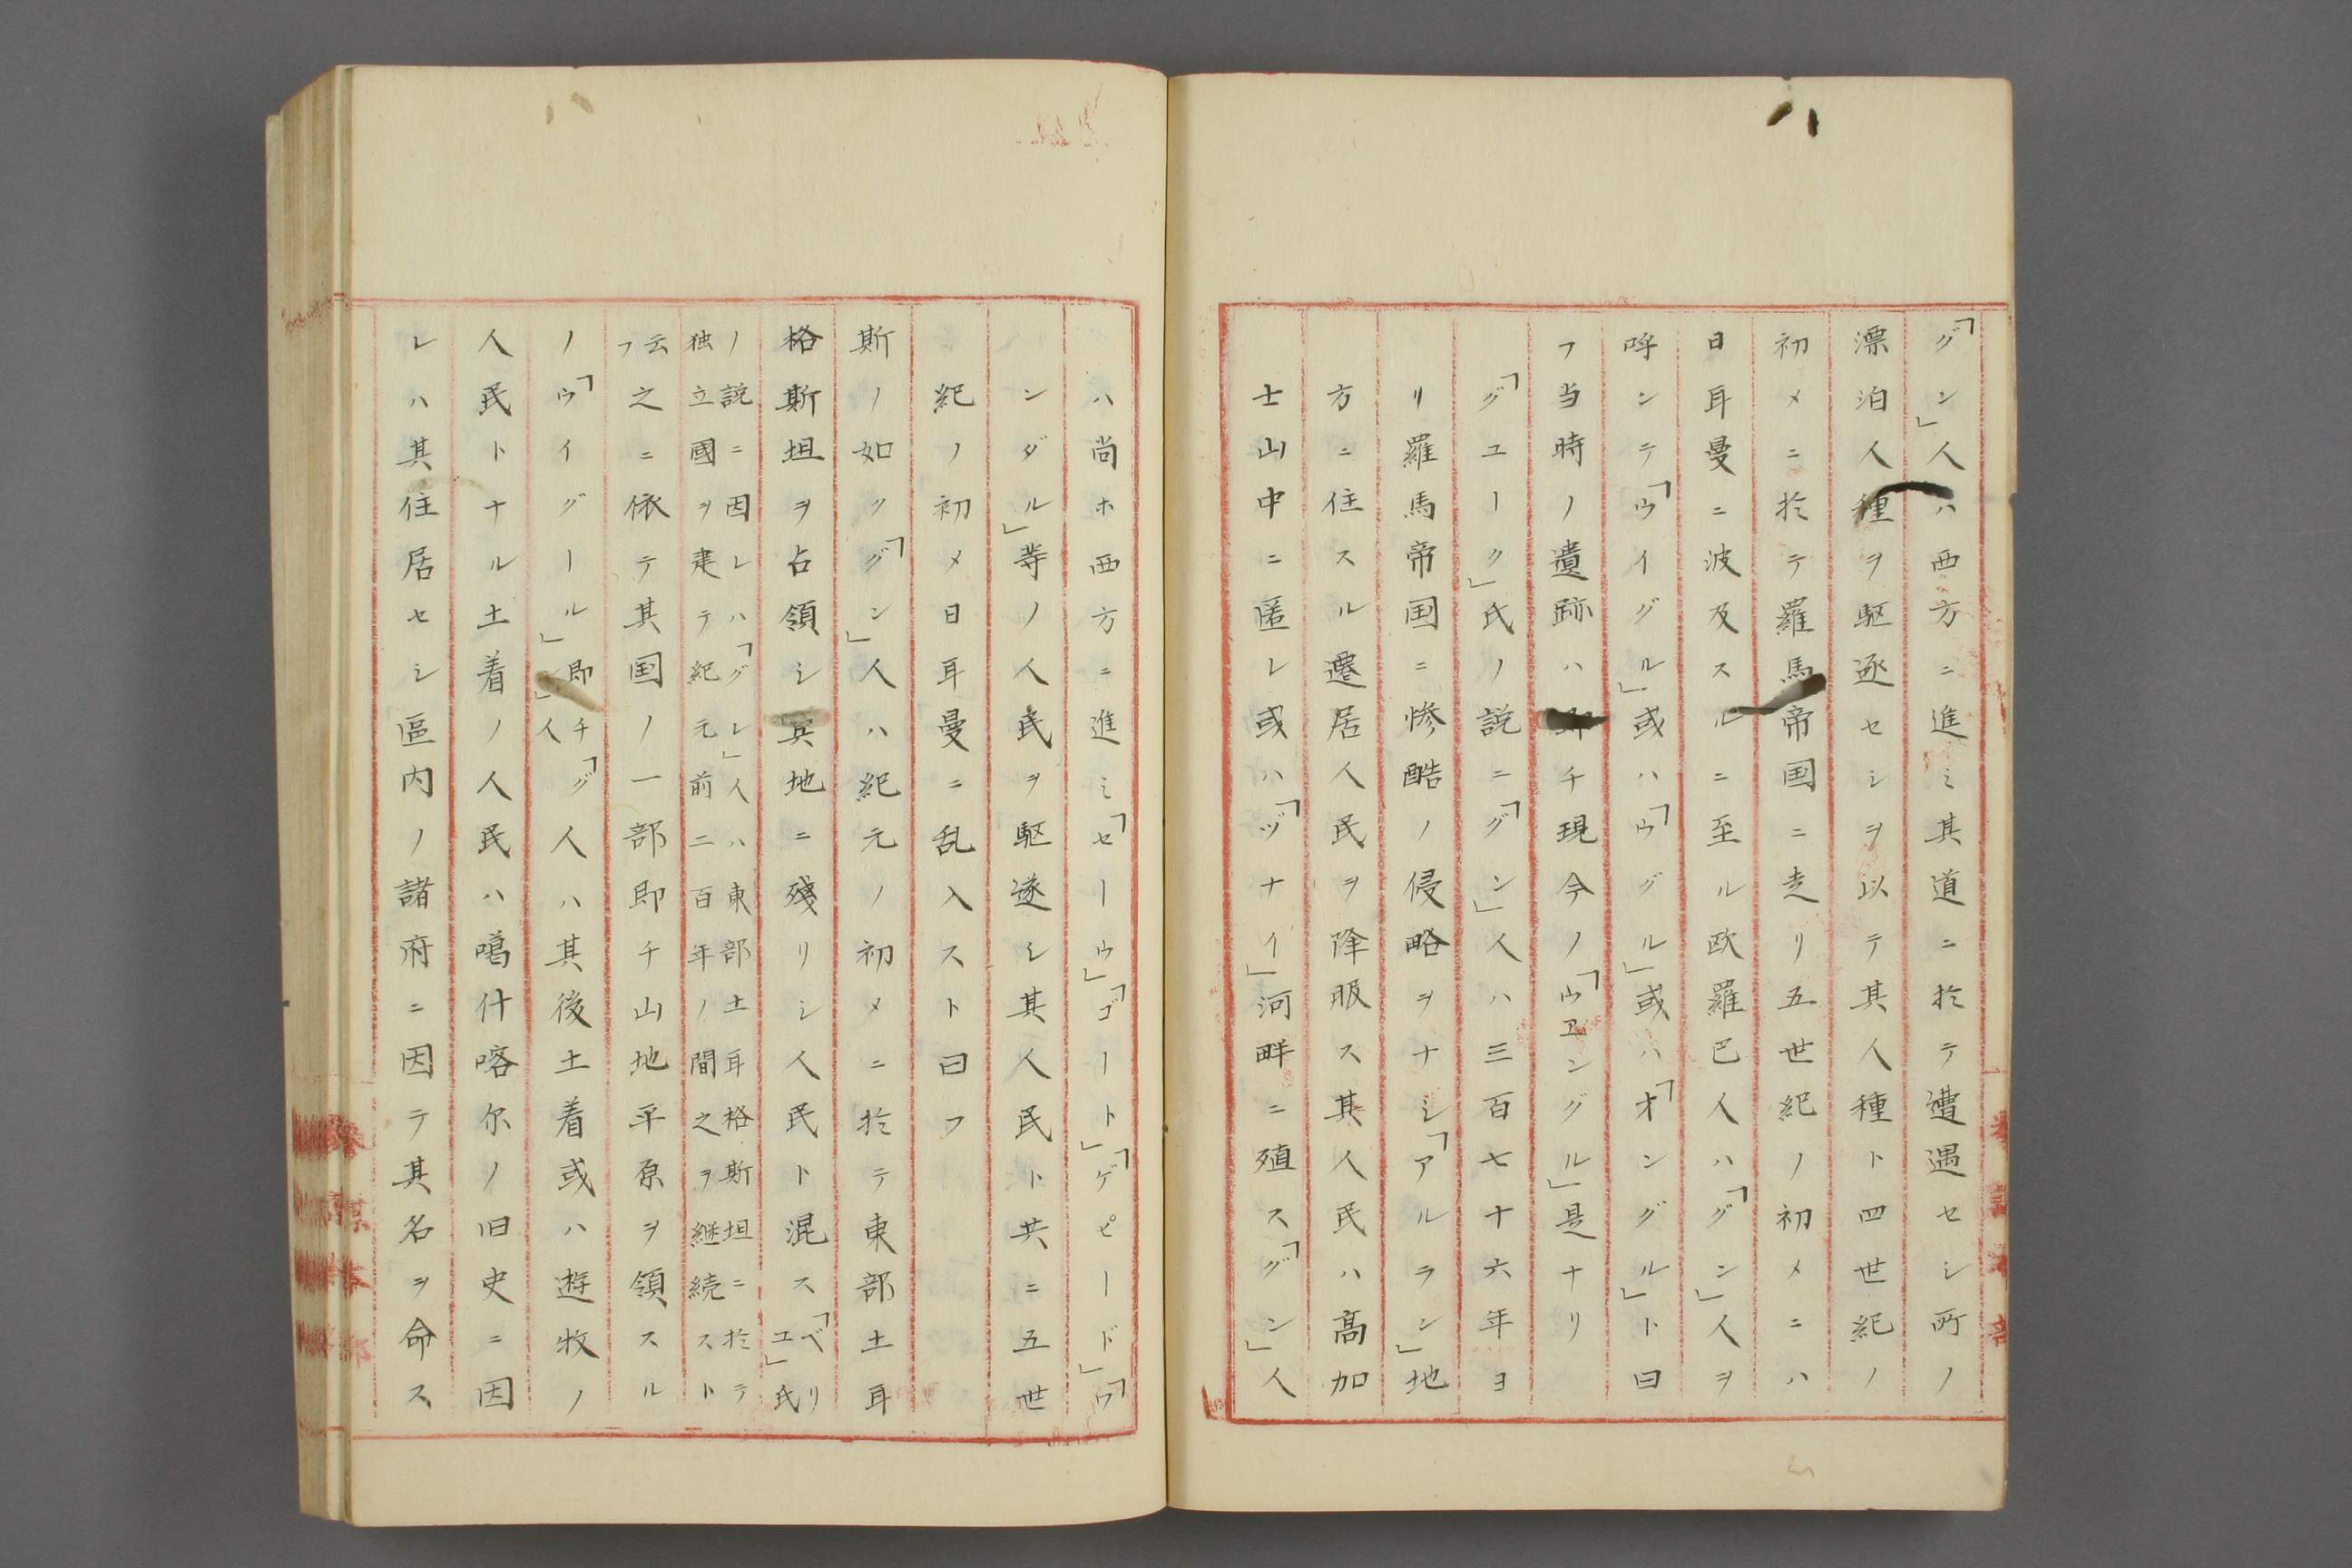 「グン」人ハ西方ニ進ミ其道ニ於テ遭遇セシ所ノ
漂泊人種ヲ駆逐セシヲ以テ其人種ト四世紀ノ
初メニ於テ羅馬帝国ニ走リ五世紀ノ初メニハ
日耳曼ニ波及スルニ至ル欧羅巴人ハ「グン」人ヲ
呼ンテ「ウイグル」或ハ「ウグル」或ハ「オングル」ト曰
フ当時ノ遺跡ハ即チ現今ノ「ウエングル」是ナリ
「グユーク」氏ノ説ニ「グン」人ハ三百七十六年ヨ
リ羅馬帝国ニ惨酷ノ侵略ヲナシ「アルラン」地
方ニ住スル遷居人民ヲ降服ス其人民ハ高加
士山中ニ匿レ或ハ「ヅナイ」河畔ニ殖ス「グン」人
ハ尚ホ西方ニ進ミ「セーウ」「ゴート」「ゲピード」「ワ
ンダル」等ノ人民ヲ駆遂シ其人民ト共ニ五世
紀ノ初メ日耳曼ニ乱入スト曰フ
斯ノ如ク「グン」人ハ紀元ノ初メニ於テ東部土耳
格斯坦ヲ占領シ其地ニ残リシ人民ト混ス「ベリ
ユ」氏
ノ説ニ因レハ「グレ」人ハ東部土耳格斯坦ニ於テ
独立國ヲ建テ紀元前二百年ノ間之ヲ継続スト
云
フ之ニ依テ其国ノ一部即チ山地平原ヲ領スル
ノ「ウイグール」即チ「グ
ン」人人ハ其後土着或ハ遊牧ノ
人民トナル土着ノ人民ハ噶什喀尔ノ旧史ニ因
レハ其住居セシ區内ノ諸府ニ因テ其名ヲ命ス